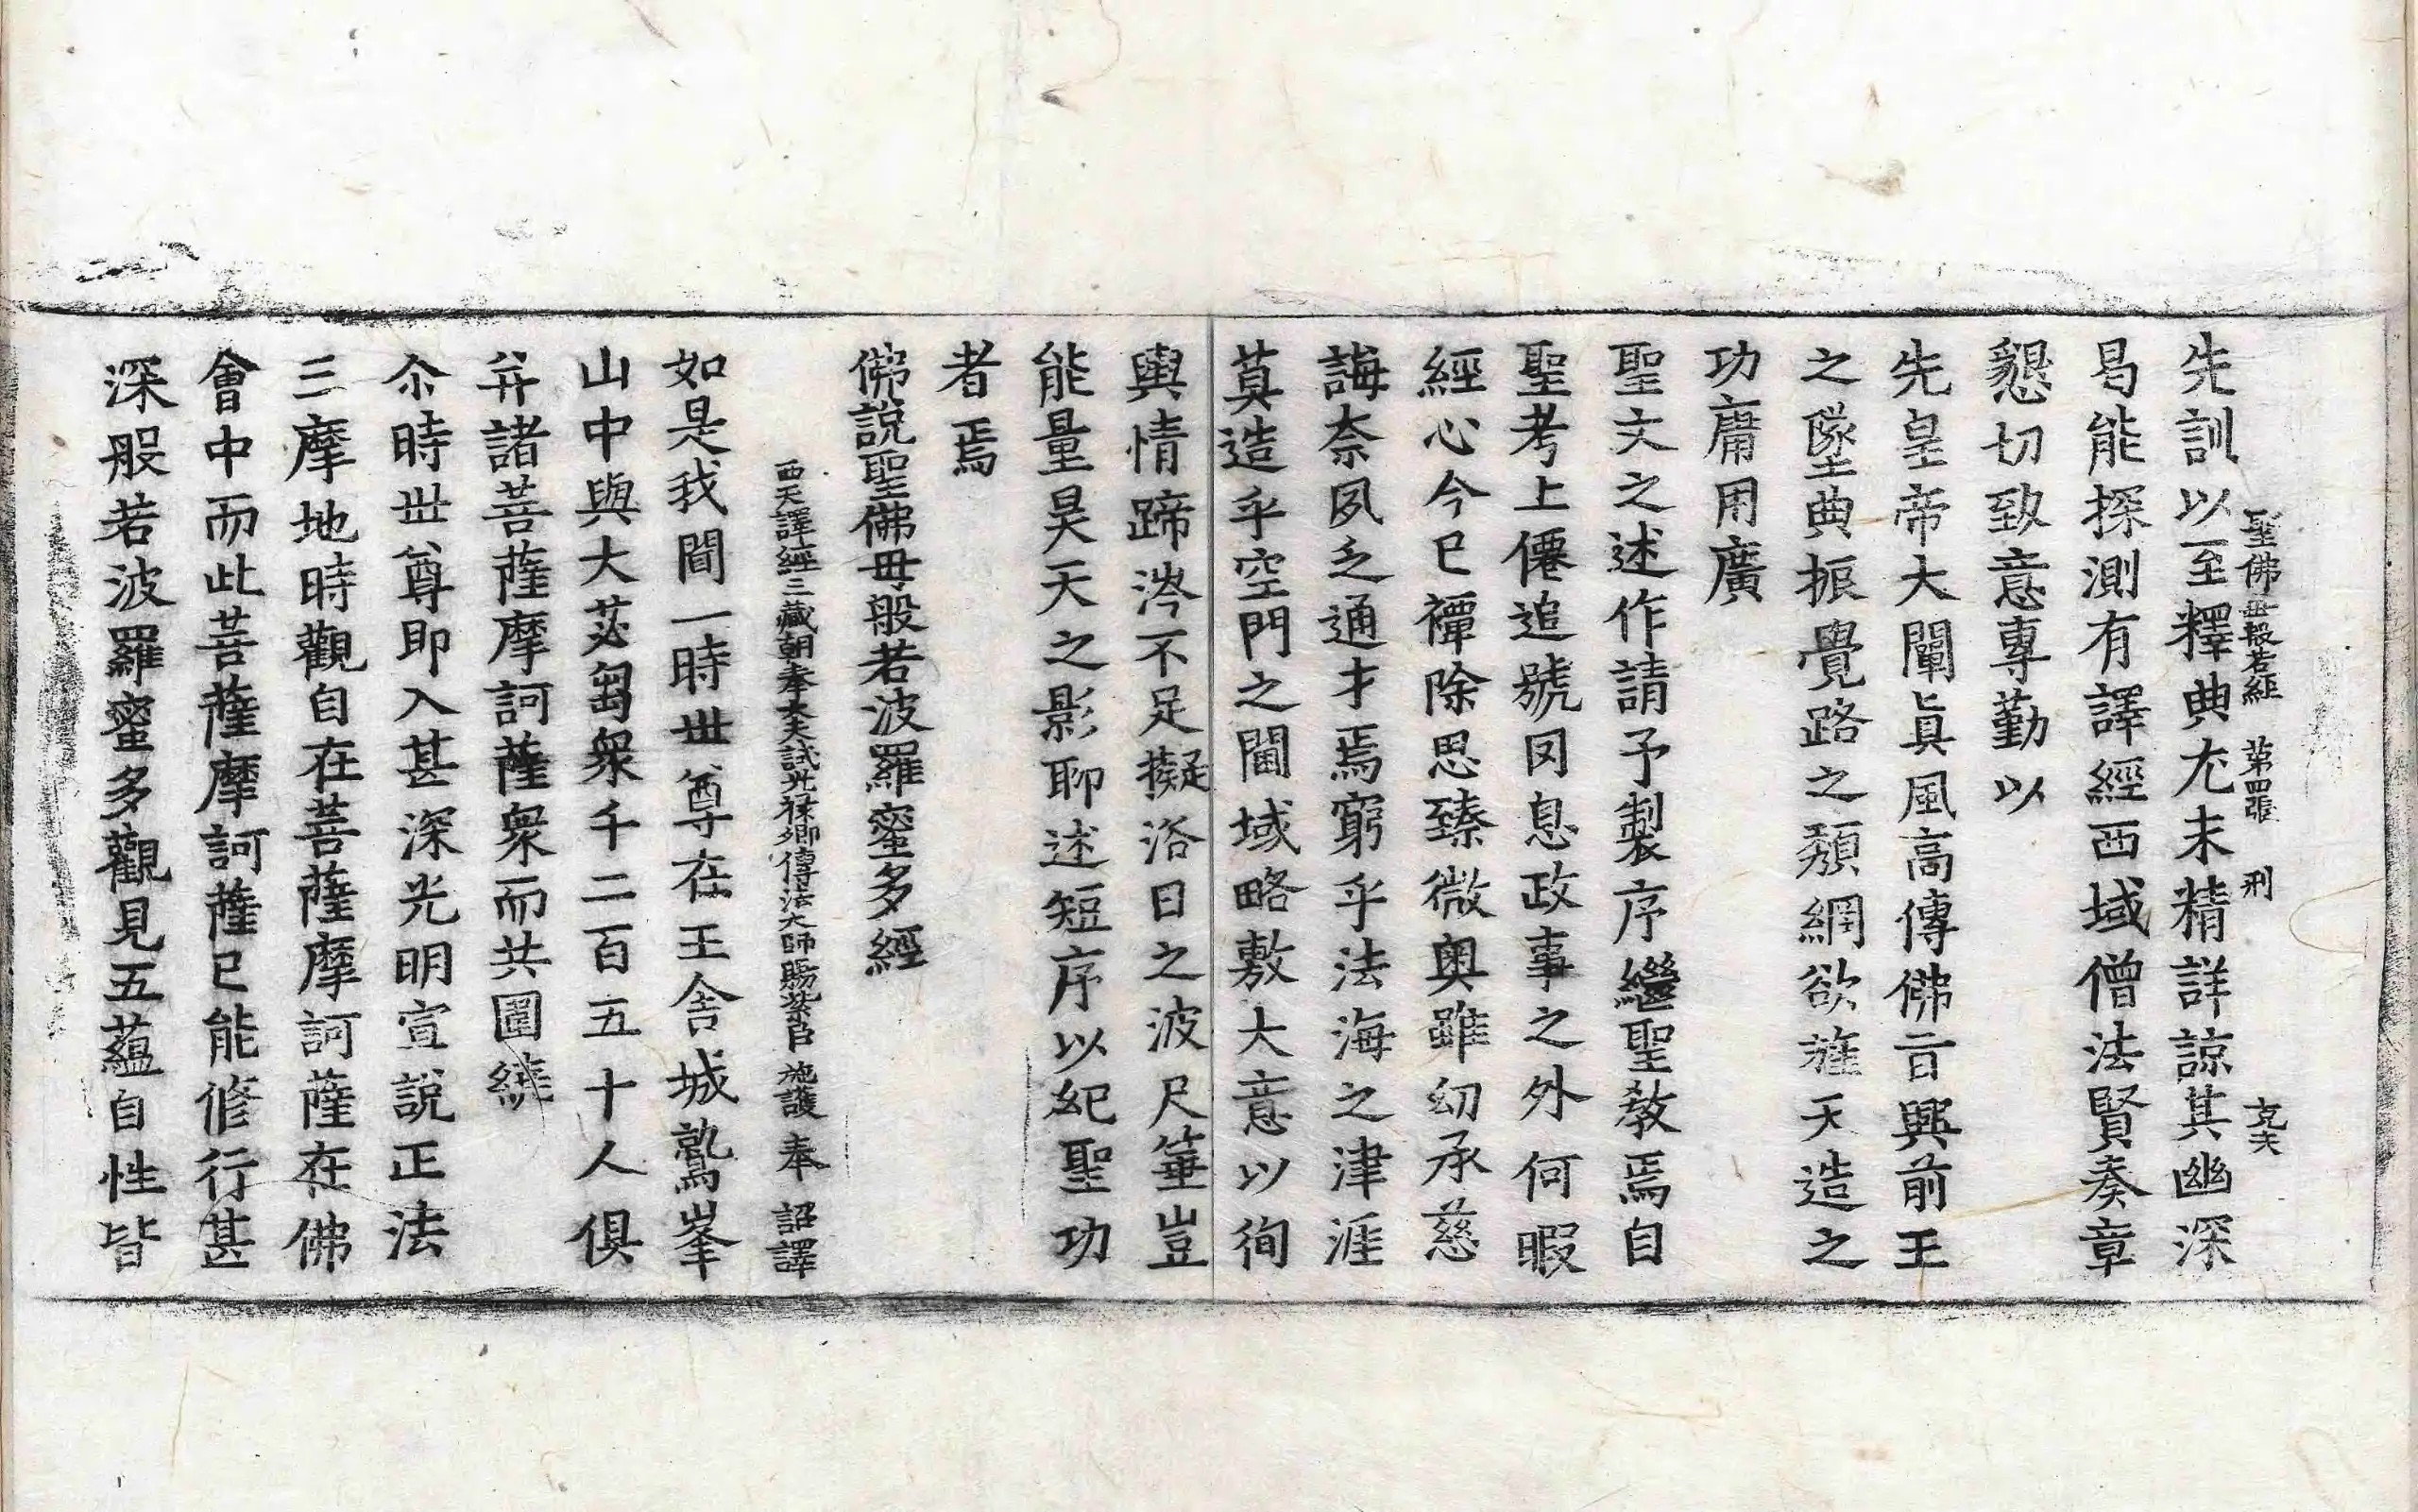 聖佛母般若經 第四張 刑 克夫
先訓以至釋典尤未精詳諒其幽深
曷能探測有譯經西域僧法賢奏章
懇切致意專勤以
先皇帝大闡真風高傳佛旨興前王
之墜典振覺路之頹網欲旌天造之
功庸用廣
聖文之述作請予製序繼聖教焉自
聖考上僊追號罔息政事之外何暇
經心今已禫除思臻微奧雖幼承慈
誨柰夙乏通才焉窮乎法海之津涯
莫造乎空門之閫域略敷大意以徇
輿情蹄涔不足擬浴日之波尺箠豈
能量昊天之影聊述短序以紀聖功
者焉
佛說聖佛母般若波羅蜜多經
西天譯經三藏朝奉大夫試光祿卿傳法大師賜紫臣 施護 奉 詔譯
如是我聞一時世尊在王舍城鷲峯
山中與大苾芻衆千二百五十人俱
并諸菩薩摩訶薩衆而共圍繞
尒時世尊即入甚深光明宣說正法
三摩地時觀自在菩薩摩訶薩在佛
會中而此菩薩摩訶薩已能修行甚
深般若波羅蜜多觀見五蘊自性皆